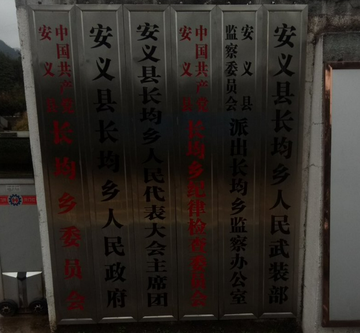 中国共产党
安义县
长均乡委员会
安义县长均乡人民政府
安义县长均乡人民代表大会主席团
中国共产党
安义县
长均乡纪律检查委员会
安义县
监察委员会
派出长均乡监察办公室
安义县长均乡人民武装部